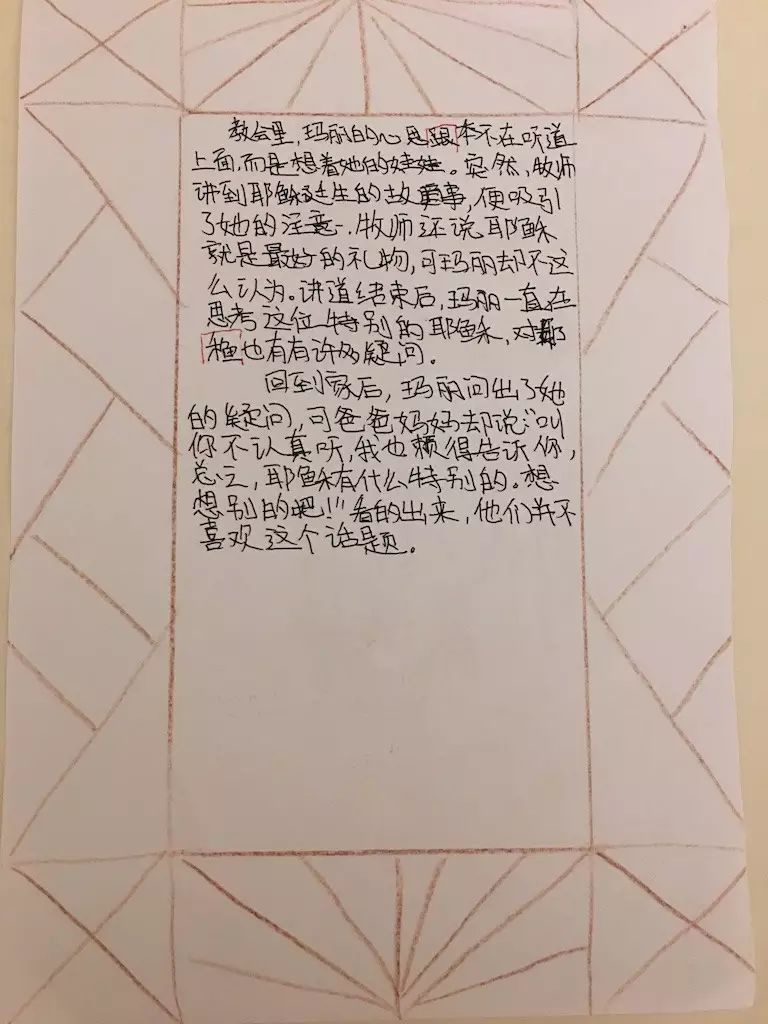 教会里，玛丽的心思跟本不在听道
上面，而是想着她的娃娃。突然，牧师
讲到耶稣诞生的故事，便吸引
了她的注意。牧师还说耶稣
就是最好的礼物，可玛丽却不这
么认为。讲道结束后，玛丽一直在
思考这位特别的耶稣，对耶
稣也有有许多疑问。
回到家后，玛丽问出了她
的疑问，可爸爸妈妈却说：“叫
你不认真听，我也赖得告诉你，
总之，耶稣有什么特别的。想
想别的吧！”看的出来，他们并不
喜欢这个话题。